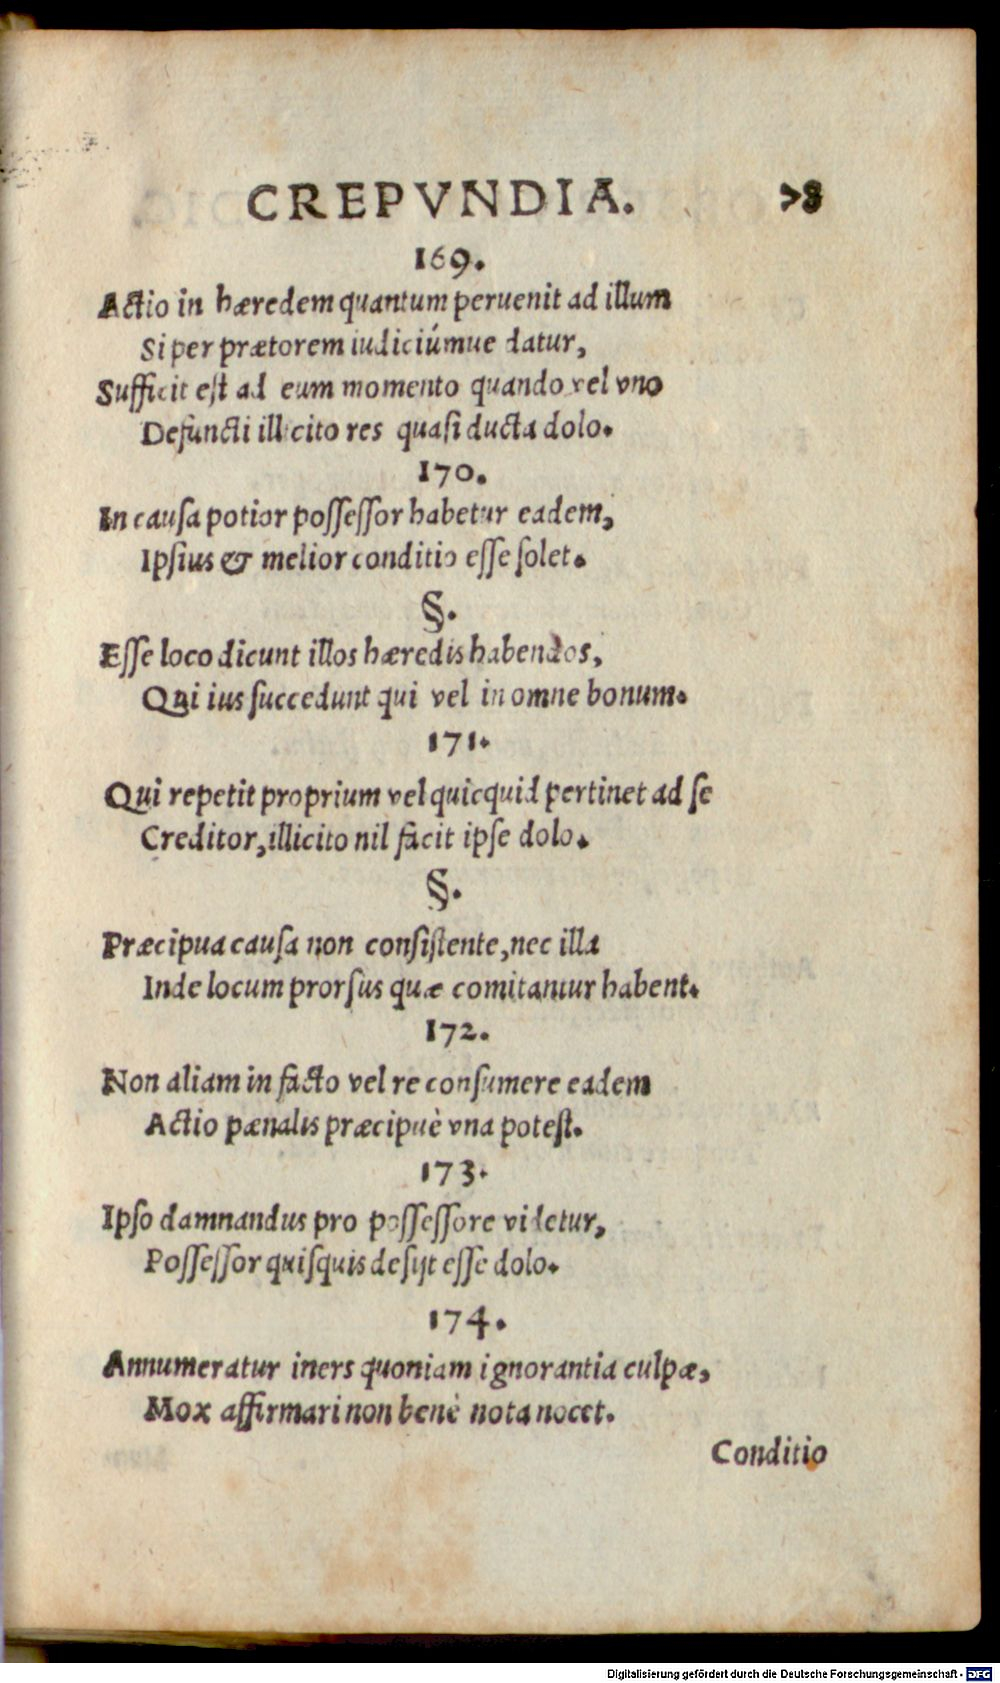 CREPVNDIA. 78
169.
Actio in hæredem quantum peruenit ad illum
Si per prætorem iudiciúmue datur,
Sufficit est ad eum momento quando vel vno
Defuncti illicito res quasi ducta dolo.
170.
In causa potior possessor habetur eadem,
Ipsius & melior conditio esse solet.
§.
Esse loco dicunt illos hæredis habendos,
Qui ius succedunt qui vel in omne bonum.
171.
Qui repetit proprium vel quicquid pertinet ad se
Creditor, illicito nil facit ipse dolo.
§.
Præcipua causa non consistente, nec illa
Inde locum prorsus quæ comitantur habent.
172.
Non aliam in facto vel re consumere eadem
Actio pænalis præcipuè vna potest.
173.
Ipso damnandus pro possessore videtur,
Possessor quisquis desijt esse dolo.
174.
Annumeratur iners quoniam ignorantia culpæ,
Mox affirmari non benè nota nocet.
Conditio
Digitalisierung gefördert durch die Deutsche Forschungsgemeinschaft - DFG